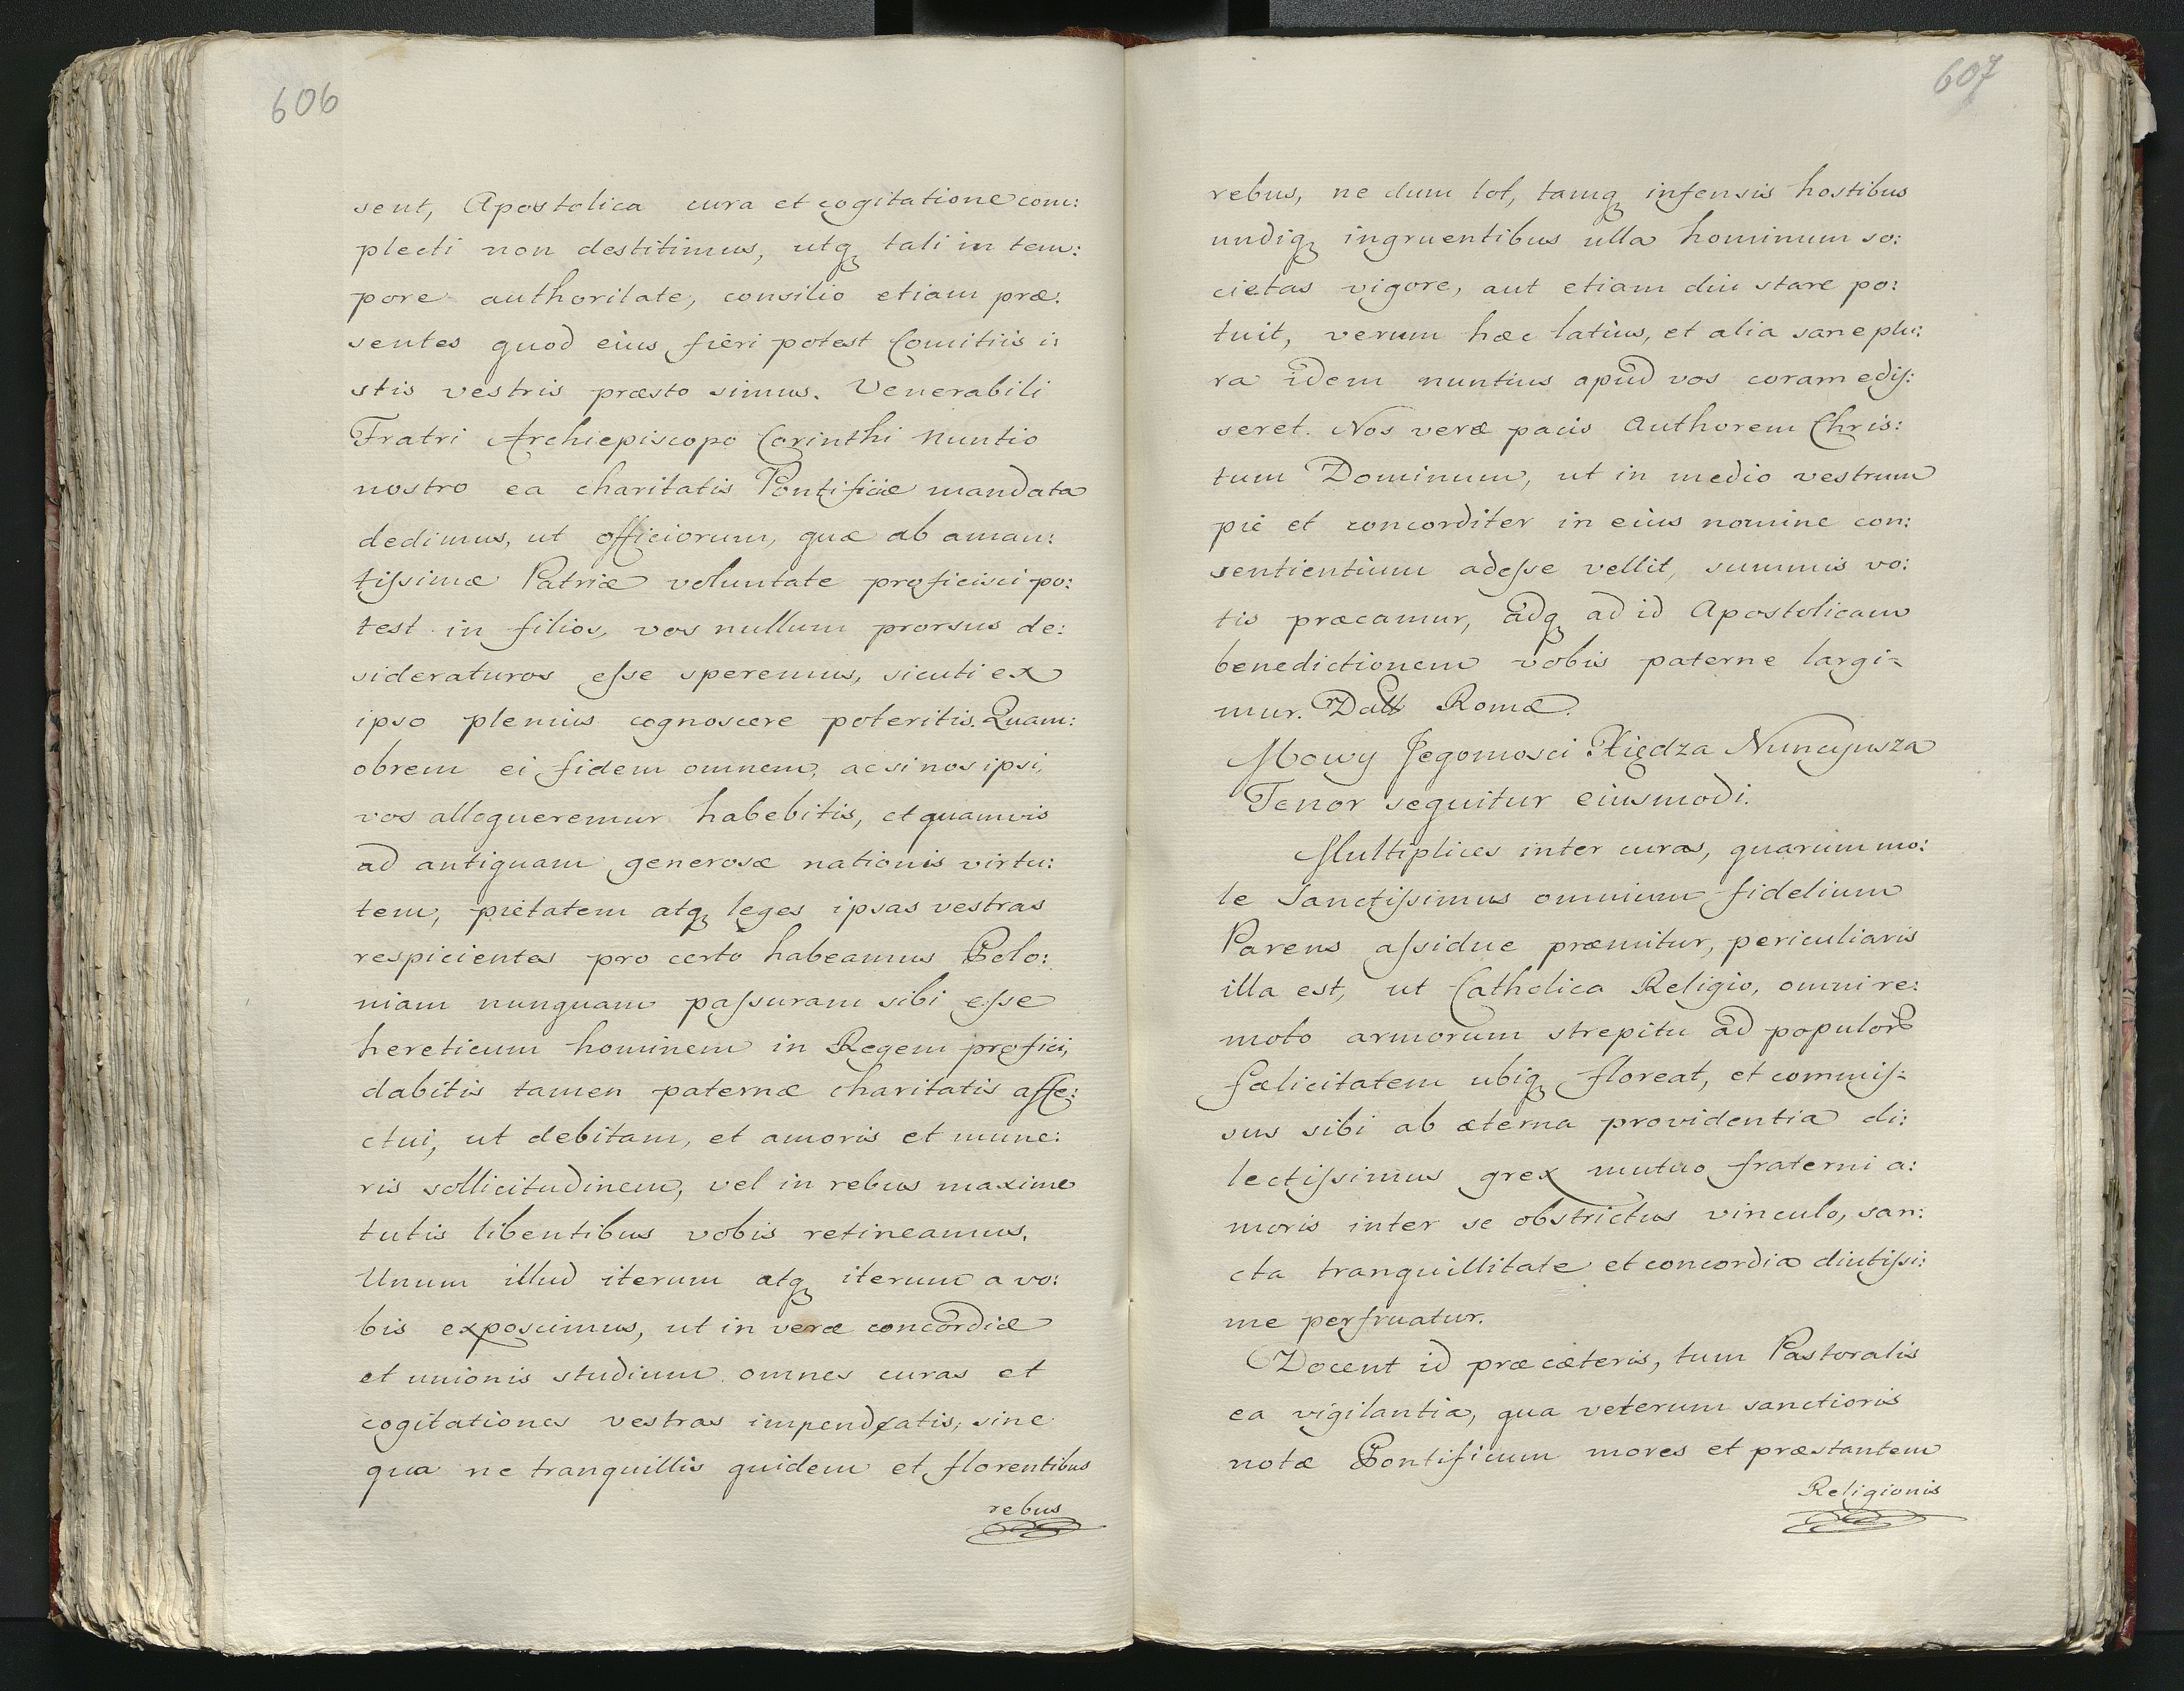 606
sent, Apostolica cura et cogitatione com:
plecti non destitimus, utq tali in tem:
pore authoritate, consilio etiam præ:
sentes quod eius fieri potest Comitiis i:
stis vestris præsto simus. Venerabili
Fratri Archiepiscopo Corinthi Nuntio
nostro ea charitatis Pontificiæ mandata
dedimus, ut officiorum, quæ ab aman:
tiſsimæ Patriæ voluntate proficisci po:
test in filios, vos nullum prorsus de:
sideraturos eſse speremus, sicuti ex
ipso plenius cognoscere poteritis. Quam:
obrem ei fidem omnem, ac si nos ipsi,
vos alloqueremur habebitis, et quamvis
ad antiquam generosæ nationis virtu:
tem, pietatem atq leges ipsas vestras
respicientes pro certo habeamus Polo:
niam nunquam paſsuram sibi eſse
hereticum hominem in Regem prefici,
dabitis tamen paternæ charitatis affe:
ctui, ut debitam, et amoris et mune:
ris sollicitudinem, vel in rebus maxime
tutis libentibus vobis retineamus.
Unum illud iterum atq iterum a vo:
bis exposcimus, ut in veræ concordiæ
et unionis studium omnes curas et
cogitationes vestras impendeatis, sine
qua ne tranquillis quidem et florentibus
rebus
607
rebus, ne dum tot, tamq infensis hostibus
undiq ingruentibus ulla hominum so:
cietas vigore, aut etiam diu stare po:
tuit, verum hæc latius, et alia sane plu:
ra idem nuntius apud vos coram ediſ:
seret. Nos veræ pacis Authorem Chris:
tum Dominum, ut in medio vestrum
pie et concorditer in eius nomine con:
sentientium adeſse vellit, summis vo:
tis præcamur, adq ad id Apostolicam
benedictionem vobis paterne largi=
mur. Datt Romæ.
Mowy Jegomosci Xiędza Nuncyusza
Tenor sequitur eiusmodi.
Multiplices inter curas, quarum mo:
le Sanctiſsimus omnium fidelium
Parens aſsidue præmitur, periculiaris
illa est, ut Catholica Religio, omni re:
moto armorum strepitu ad populor
fælicitatem ubiq floreat, et commiſ=
sus sibi ab æterna providentia di:
lectiſsimus grex mutuo fraterni a:
moris inter se obstrictus vinculo, san:
cta tranquillitate et concordia diutiſsi:
me perfruatur.
Docent id præ cæteris, tum Pastoralis
ea vigilantia, qua veterum sanctioris
notæ Pontificum mores et præstantem
Religionis